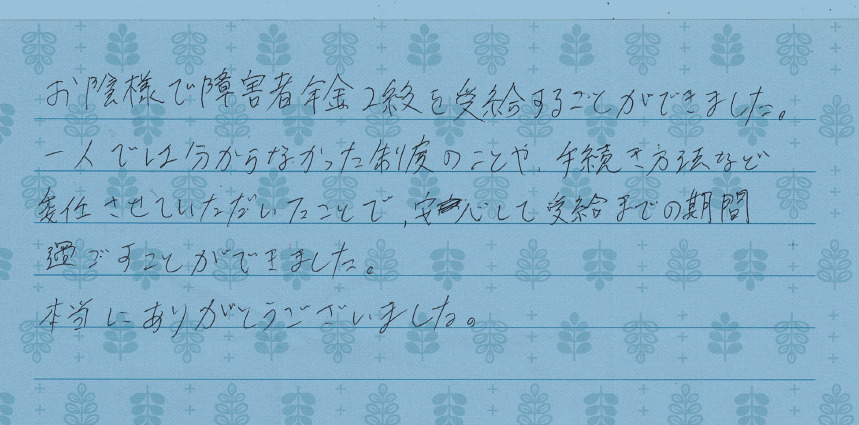 お陰様で障害者年金2級を受給することができました。
一人では分からなかった制度のことや、手続き方法など
委任させていただいたことで、安心して受給までの期間
過ごすことができました。
本当にありがとうございました。